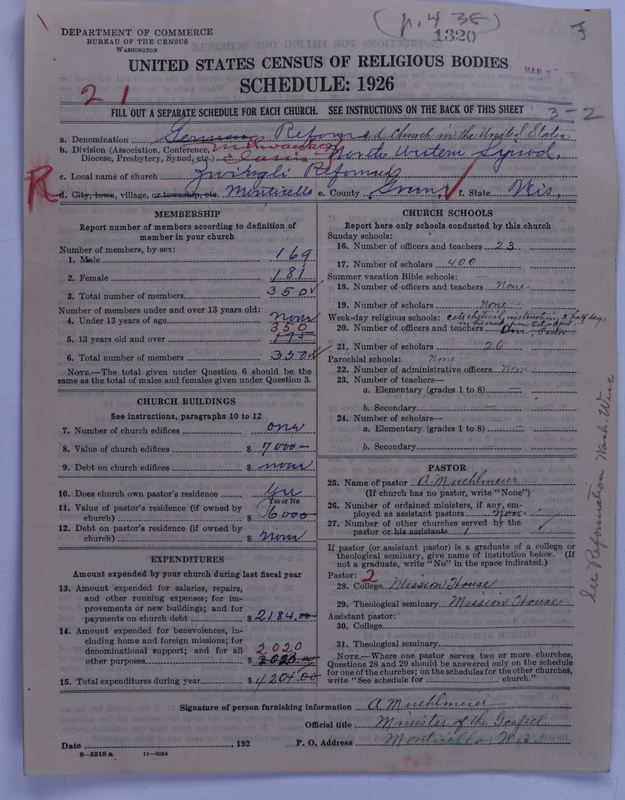 (p.4 38)
1320
DEPARTMENT OF COMMERCE
BUREAU OF THE CENSUS
WASHINGTON
UNITED STATES CENSUS OF RELIGIOUS BODIES
SCHEDULE: 1926
2 1
FILL OUT A SEPARATE SCHEDULE FOR EACH CHURCH. SEE INSTRUCTIONS ON THE BACK OF THIS SHEET
3-2
a. Denomination German Reformed Church in the United States
b. Division (Association, Conference, Milwaukee
Diocese, Presbytery, Synod, etc.) Classis North Western Synod
c. Local name of church Zwingli Reformed
R d. City, town, village, or township, etc. Monticello e. County Green f. State Wis.
MEMBERSHIP
Report number of members according to definition of
member in your church
Number of members, by sex:
1. Male 169
2. Female 181
3. Total number of members 350
Number of members under and over 13 years old:
4. Under 13 years of age none
5. 13 years old and over 350
6. Total number of members 350
NOTE.—The total given under Question 6 should be the
same as the total of males and females given under Question 3.
CHURCH BUILDINGS
See instructions, paragraphs 10 to 12
7. Number of church edifices one
8. Value of church edifices $ 7000-
9. Debt on church edifices $ none
10. Does church own pastor's residence Yes
Yes or No
11. Value of pastor's residence (if owned by
church) $ 6000
12. Debt on pastor's residence (if owned by
church) $ none
EXPENDITURES
Amount expended by your church during last fiscal year
13. Amount expended for salaries, repairs,
and other running expenses; for im-
provements or new buildings; and for
payments on church debt $ 2184.00
14. Amount expended for benevolences, in-
cluding home and foreign missions; for
denominational support; and for all 2020
other purposes $
15. Total expenditures during year $ 4204.00
CHURCH SCHOOLS
Report here only schools conducted by this church
Sunday schools:
16. Number of officers and teachers 23
17. Number of scholars 400
Summer vacation Bible schools:
18. Number of officers and teachers None
19. Number of scholars None
Week-day religious schools: catechetical instruction, 2 half days
20. Number of officers and teachers One, Pastor
21. Number of scholars 26
Parochial schools: None
22. Number of administrative officers None
23. Number of teachers—
a. Elementary (grades 1 to 8)
b. Secondary
24. Number of scholars—
a. Elementary (grades 1 to 8)
b. Secondary
PASTOR
25. Name of pastor A Muehlmeier
(If church has no pastor, write "None")
26. Number of ordained ministers, if any, em-
ployed as assistant pastors None
27. Number of other churches served by the
pastor or his assistants 1
If pastor (or assistant pastor) is a graduate of a college or
theological seminary, give name of institution below. (If
not a graduate, write "No" in the space indicated.)
Pastor: 2
28. College Mission House
29. Theological seminary Mission House
Assistant pastor:
30. College
31. Theological seminary
NOTE.—Where one pastor serves two or more churches,
Questions 28 and 29 should be answered only on the schedule
for one of the churches; on the schedules for the other churches,
write "See schedule for church."
See Reformation Wash. Wisc
Signature of person furnishing information A Muehlmeier
Official title Minister of the Gospel
Date , 192 P. O. Address Monticello, Wis
8—5518a 11—9034